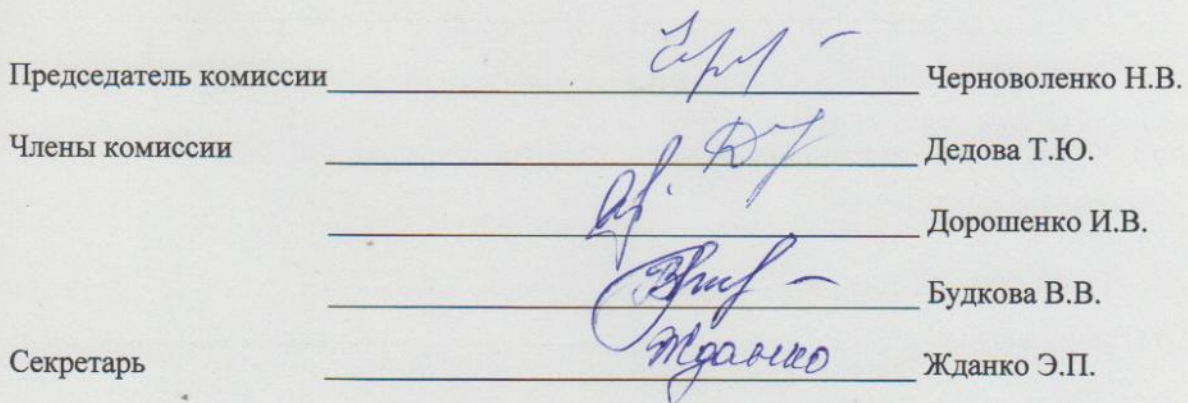 Председатель комиссии Черноволенко Н.В.
Члены комиссии Дедова Т.Ю.
Дорошенко И.В.
Будкова В.В.
Секретарь Жданко Жданко Э.П.